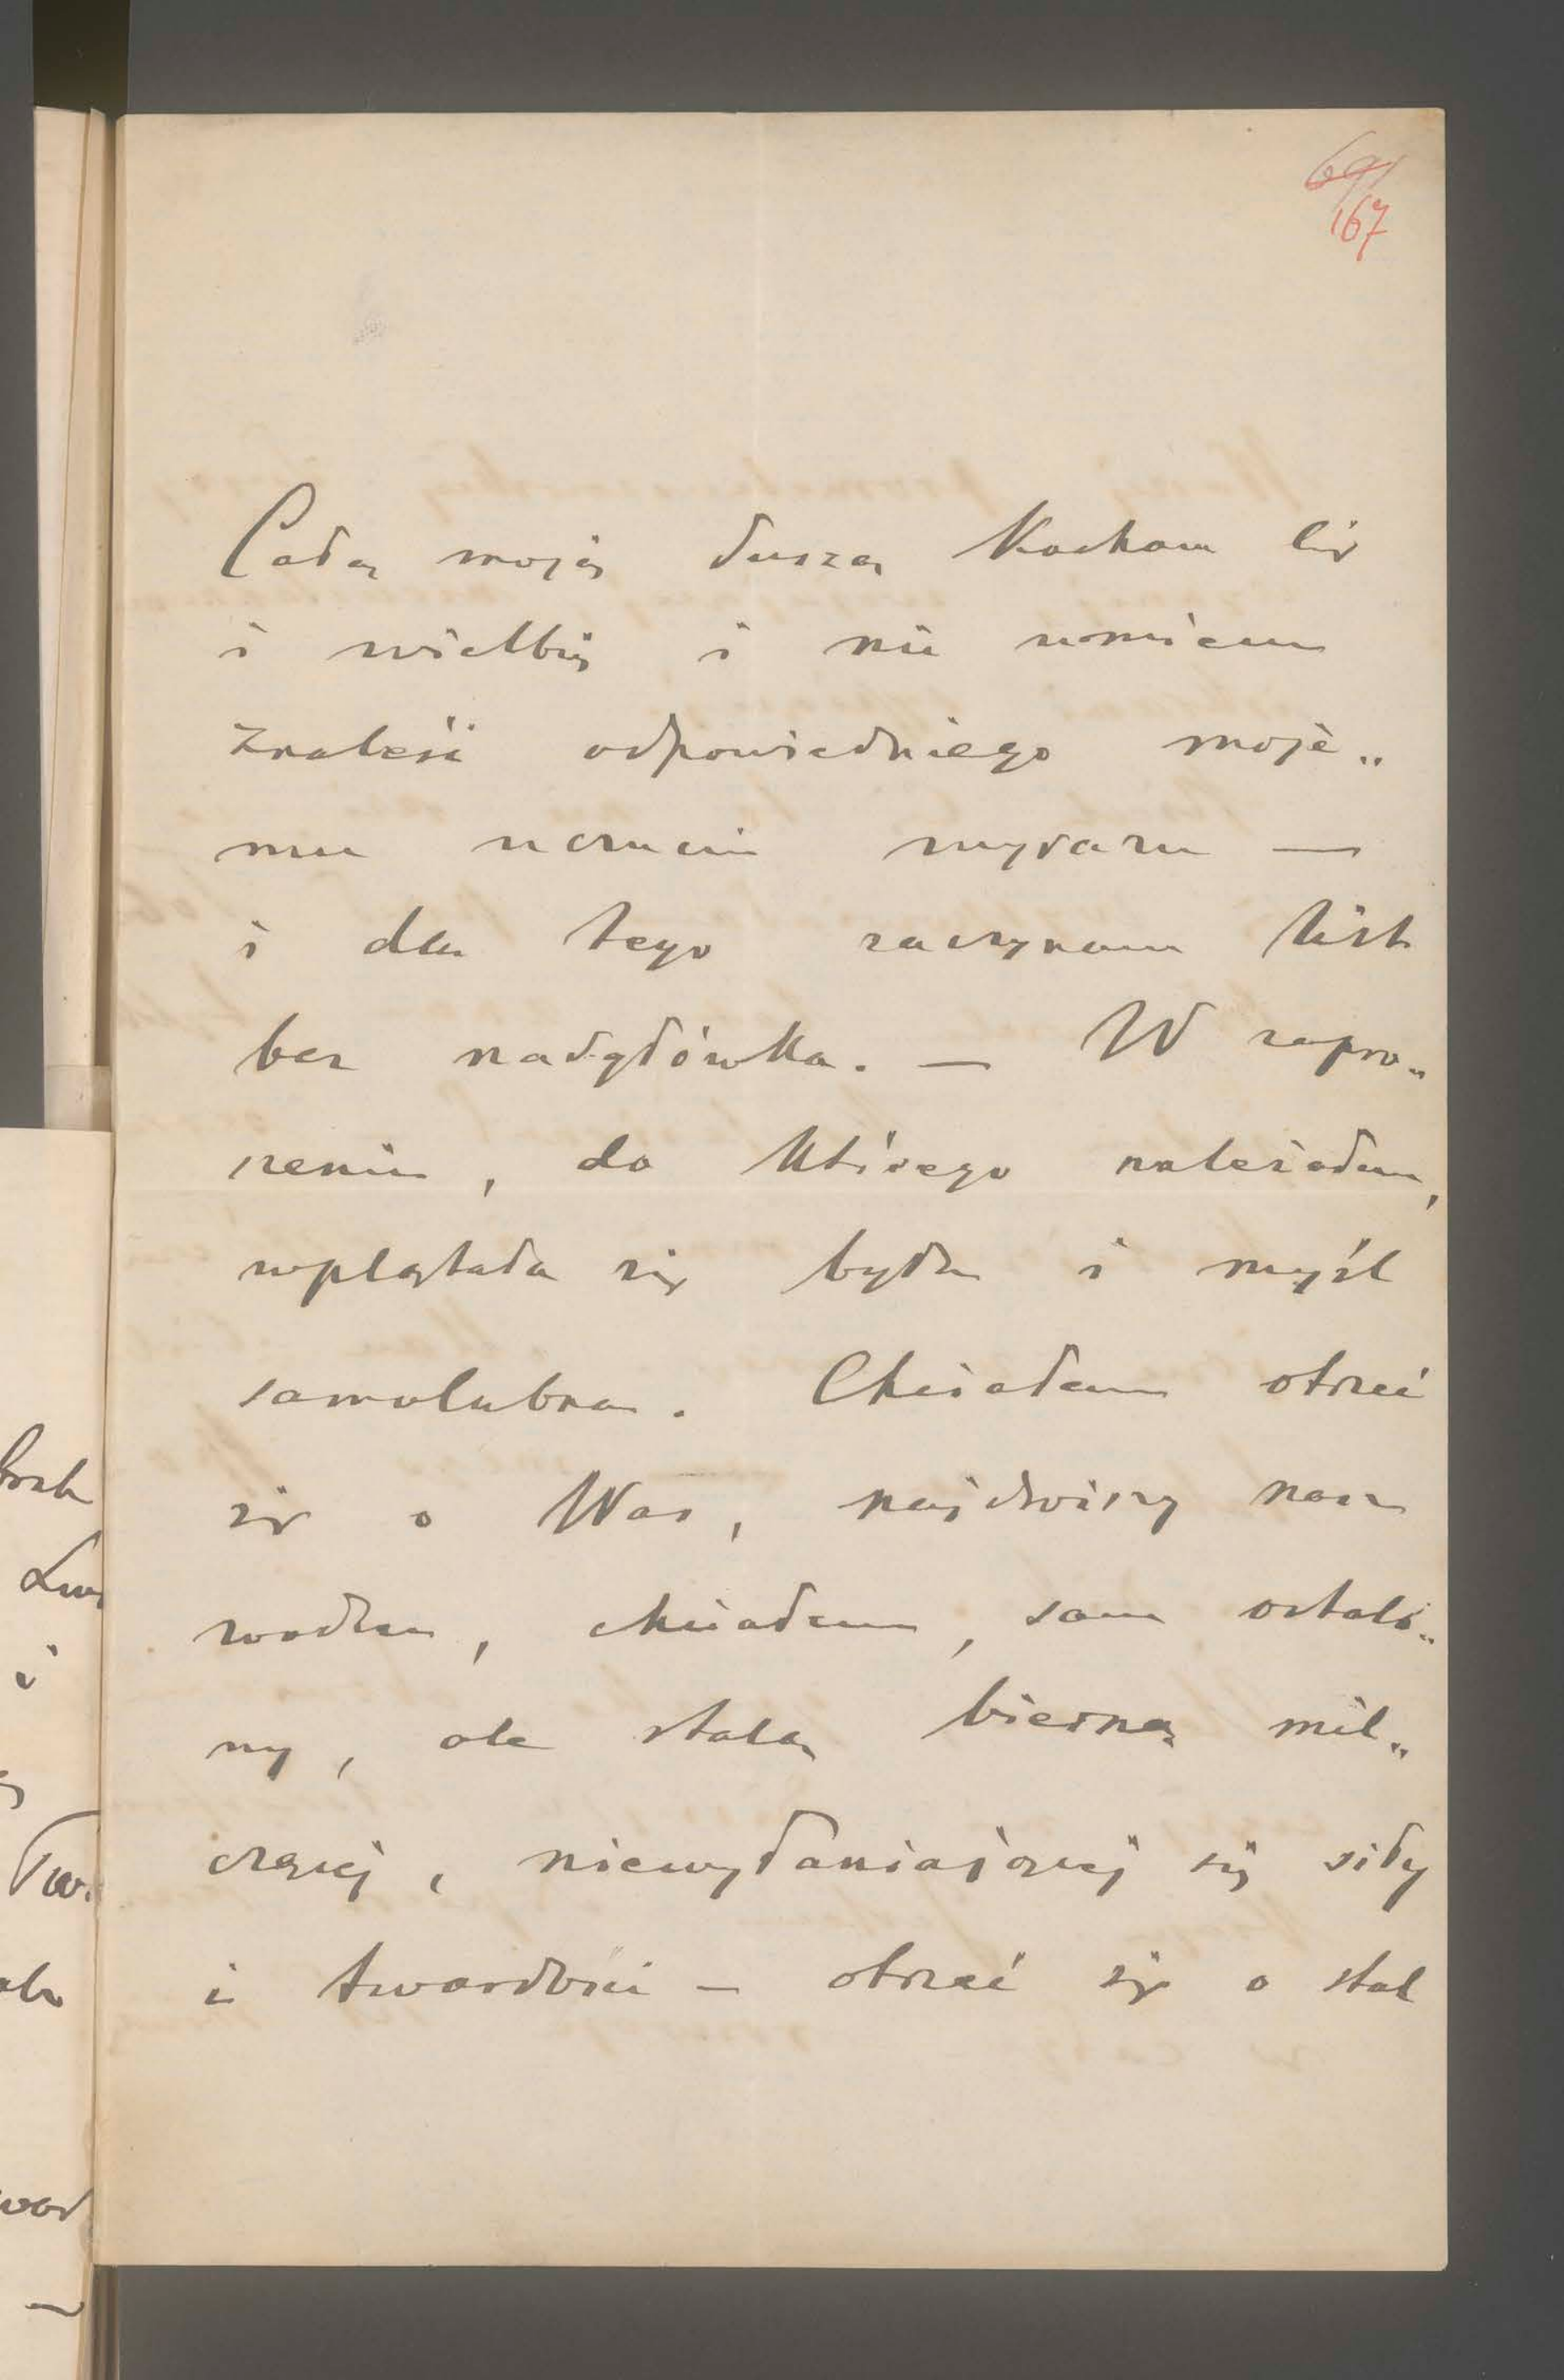 69
167
Całą moją duszą kocham Cię
i wielbię i nie umiem
znaleść odpowiedniego moje„
mu uczuciu wyrazu —
i dla tego zaczynam list
bez nadgłówka. — W zapro„
szeniu, do którego należałem,
wplątała się była i myśl
samolubna. Chciałem otrzeć
się o Was, najdroższy nasz
wodzu, chciałem, sam ostało„
ny, ale stalą bierną mil„
czącej, niewyłaniającej się siły
i twardości — otrzeć się o stal